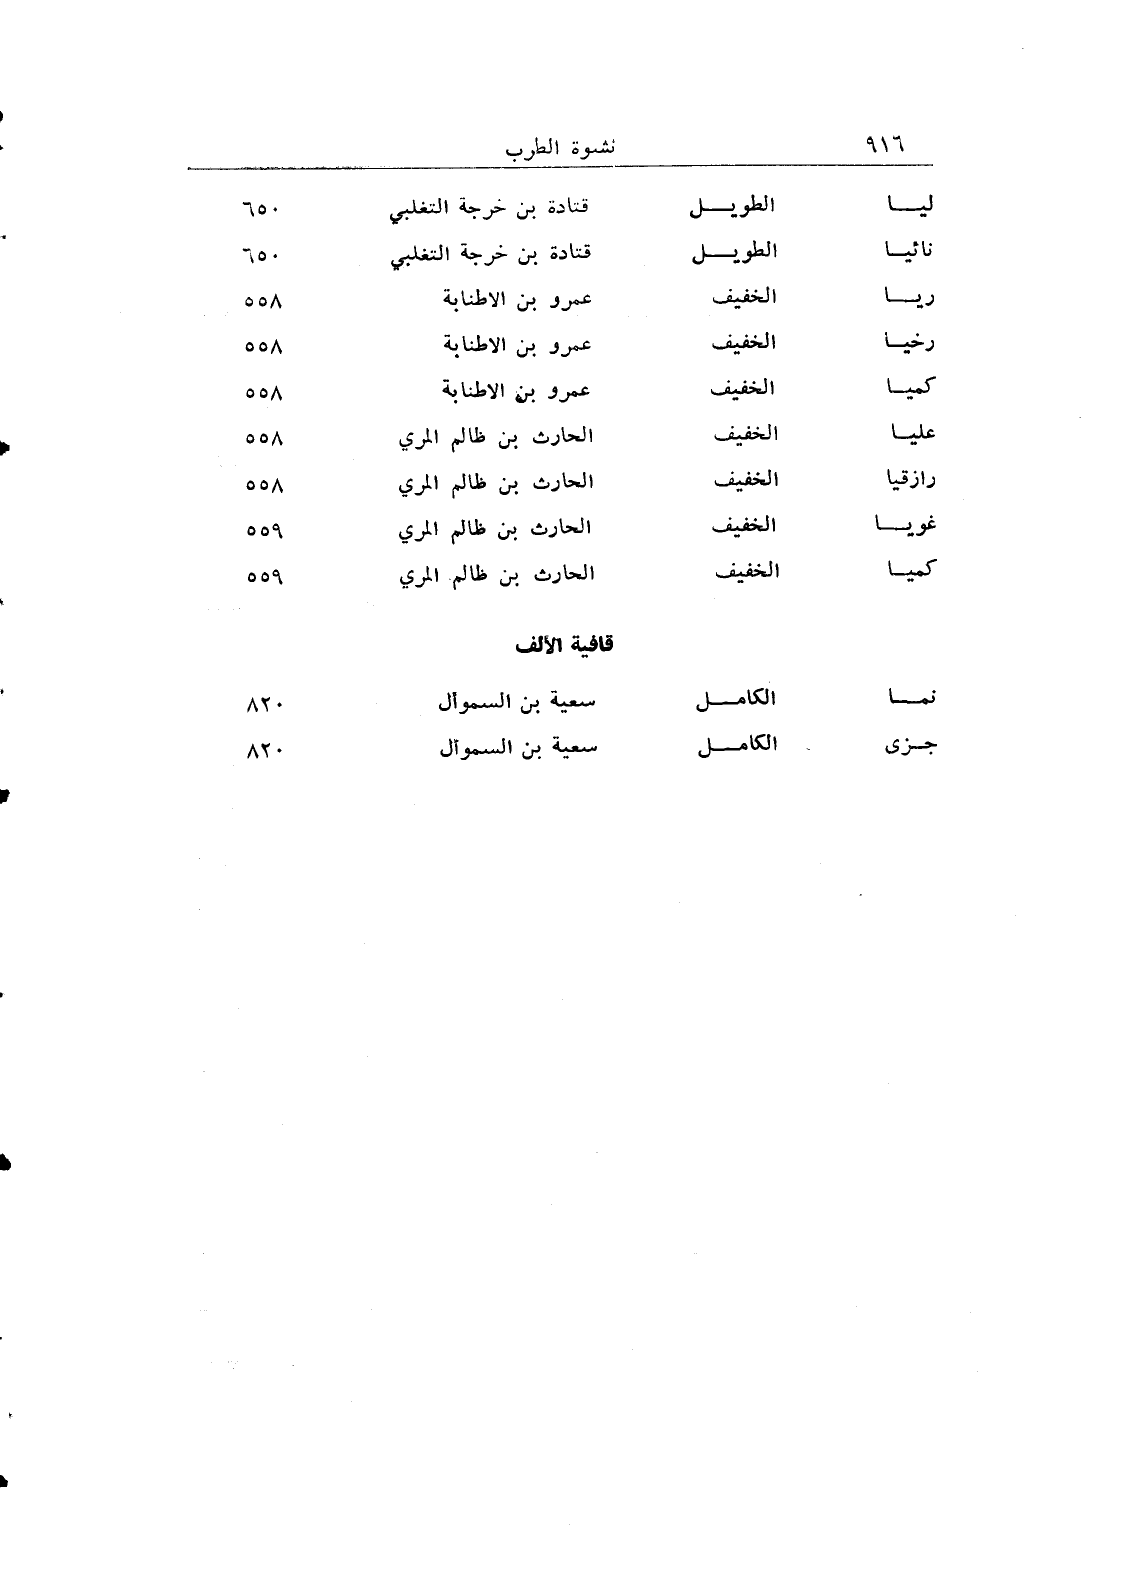 ٩١٦ نشوة الطرب
ليـــا الطويـــل قتادة بن خرجة التغلبي ٦٥٠
نائيـا الطويـــل قتادة بن خرجة التغلبي ٦٥٠
ريـــا الخفيف عمرو بن الاطنابة ٥٥٨
رخيـا الخفيف عمرو بن الاطنابة ٥٥٨
كميـا الخفيف عمرو بن الاطنابة ٥٥٨
عليـا الخفيف الحارث بن ظالم المري ٥٥٨
رازقيا الخفيف الحارث بن ظالم المري ٥٥٨
غويـــا الخفيف الحارث بن ظالم المري ٥٥٩
كميـا الخفيف الحارث بن ظالم المري ٥٥٩
قافية الألف
نمـــا الكامـــل سعية بن السموأل ٨٢٠
جـزى الكامـــل سعية بن السموأل ٨٢٠